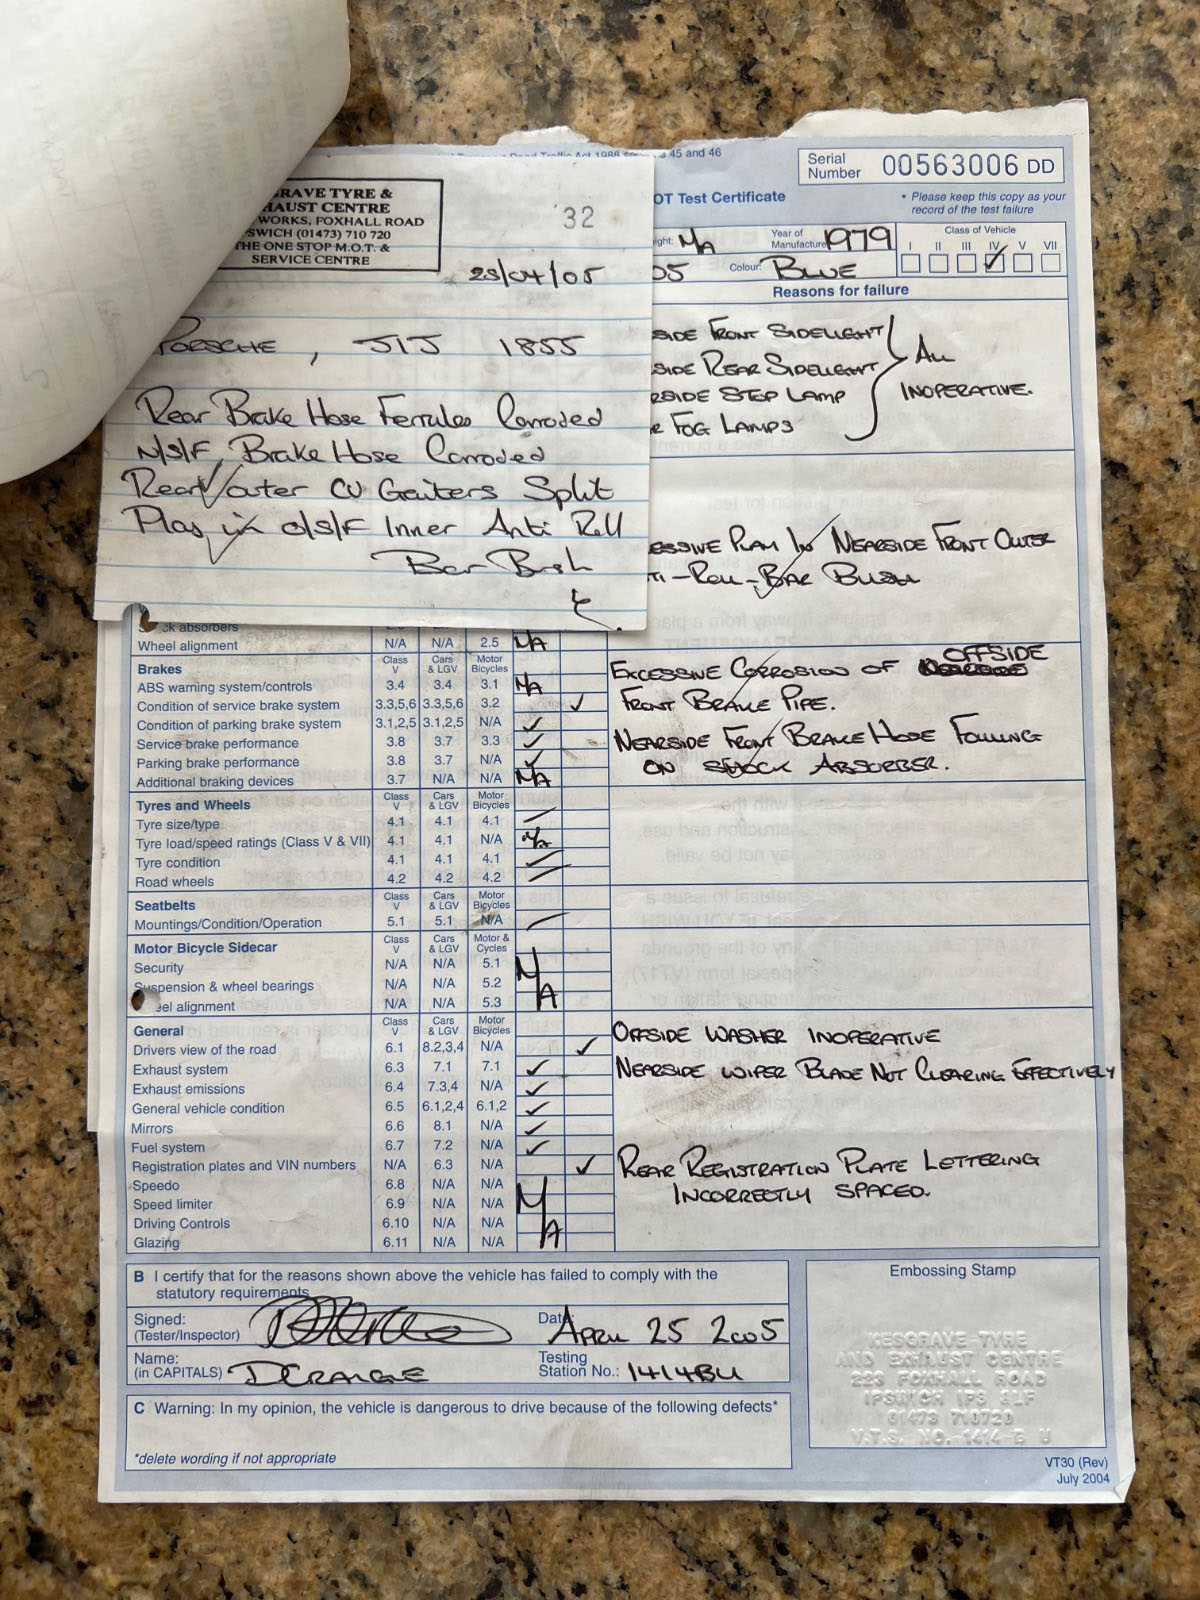 45 and 46
Serial Number 00563006 DD
OT Test Certificate
• Please keep this copy as your
record of the test failure
32
RAVE TYRE &
HAUST CENTRE
WORKS, FOXHALL ROAD
SWICH (01473) 710 720
THE ONE STOP M.O.T. &
SERVICE CENTRE
ight: N/A Year of Manufacture 1979
Class of Vehicle
I II III IV V VII
05 Colour: BLUE
Reasons for failure
/04/05
PORSCHE, JIJ 1855
Rear Brake Hose Ferrules Corroded
N/S/F Brake Hose Corroded
Rear outer CV Gaiters Split
Play in O/S/F Inner Anti Roll
Bar Bush
SIDE FRONT SIDELIGHT
SIDE REAR SIDELIGHT
RSIDE STOP LAMP
FOG LAMPS
ALL
INOPERATIVE.
ESSIVE PLAY IN NEARSIDE FRONT OUTER
TI-ROLL-BAR BUSH
ck absorbers
Wheel alignment N/A N/A 2.5 N/A
Brakes Class V Cars & LGV Motor Bicycles
ABS warning system/controls 3.4 3.4 3.1 N/A
Condition of service brake system 3.3,5,6 3.3,5,6 3.2 ✓
Condition of parking brake system 3.1,2,5 3.1,2,5 N/A ✓
Service brake performance 3.8 3.7 3.3 ✓
Parking brake performance 3.8 3.7 N/A ✓
Additional braking devices 3.7 N/A N/A N/A
EXCESSIVE CORROSION OF OFFSIDE
FRONT BRAKE PIPE.
NEARSIDE FRONT BRAKE HOSE FOULING
ON SHOCK ABSORBER.
Tyres and Wheels Class V Cars & LGV Motor Bicycles
Tyre size/type 4.1 4.1 4.1
Tyre load/speed ratings (Class V & VII) 4.1 4.1 N/A N/A
Tyre condition 4.1 4.1 4.1
Road wheels 4.2 4.2 4.2
Seatbelts Class V Cars & LGV Motor Bicycles
Mountings/Condition/Operation 5.1 5.1 N/A
Motor Bicycle Sidecar Class V Cars & LGV Motor & Cycles
Security N/A N/A 5.1
Suspension & wheel bearings N/A N/A 5.2 N/A
eel alignment N/A N/A 5.3
General Class V Cars & LGV Motor Bicycles
Drivers view of the road 6.1 8.2,3,4 N/A ✓
Exhaust system 6.3 7.1 7.1 ✓
Exhaust emissions 6.4 7.3,4 N/A ✓
General vehicle condition 6.5 6.1,2,4 6.1,2 ✓
Mirrors 6.6 8.1 N/A ✓
Fuel system 6.7 7.2 N/A ✓
Registration plates and VIN numbers N/A 6.3 N/A ✓
Speedo 6.8 N/A N/A
Speed limiter 6.9 N/A N/A N/A
Driving Controls 6.10 N/A N/A
Glazing 6.11 N/A N/A
OFFSIDE WASHER INOPERATIVE
NEARSIDE WIPER BLADE NOT CLEARING EFFECTIVELY
REAR REGISTRATION PLATE LETTERING
INCORRECTLY SPACED.
B I certify that for the reasons shown above the vehicle has failed to comply with the
statutory requirements
Signed:
(Tester/Inspector)
Date: APRIL 25 2005
Name:
(in CAPITALS)
Testing
Station No.: 1414BU
C Warning: In my opinion, the vehicle is dangerous to drive because of the following defects*
*delete wording if not appropriate
Embossing Stamp
KESGRAVE TYRE
AND EXHAUST CENTRE
223 FOXHALL ROAD
IPSWICH IP3 8LF
01473 710720
V.T.S. NO. 1414 B U
VT30 (Rev)
July 2004